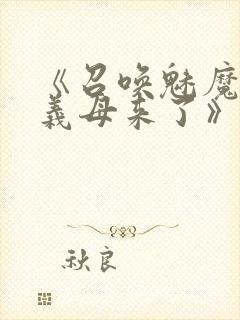 《召唤魅魔
义母来了》
秋良